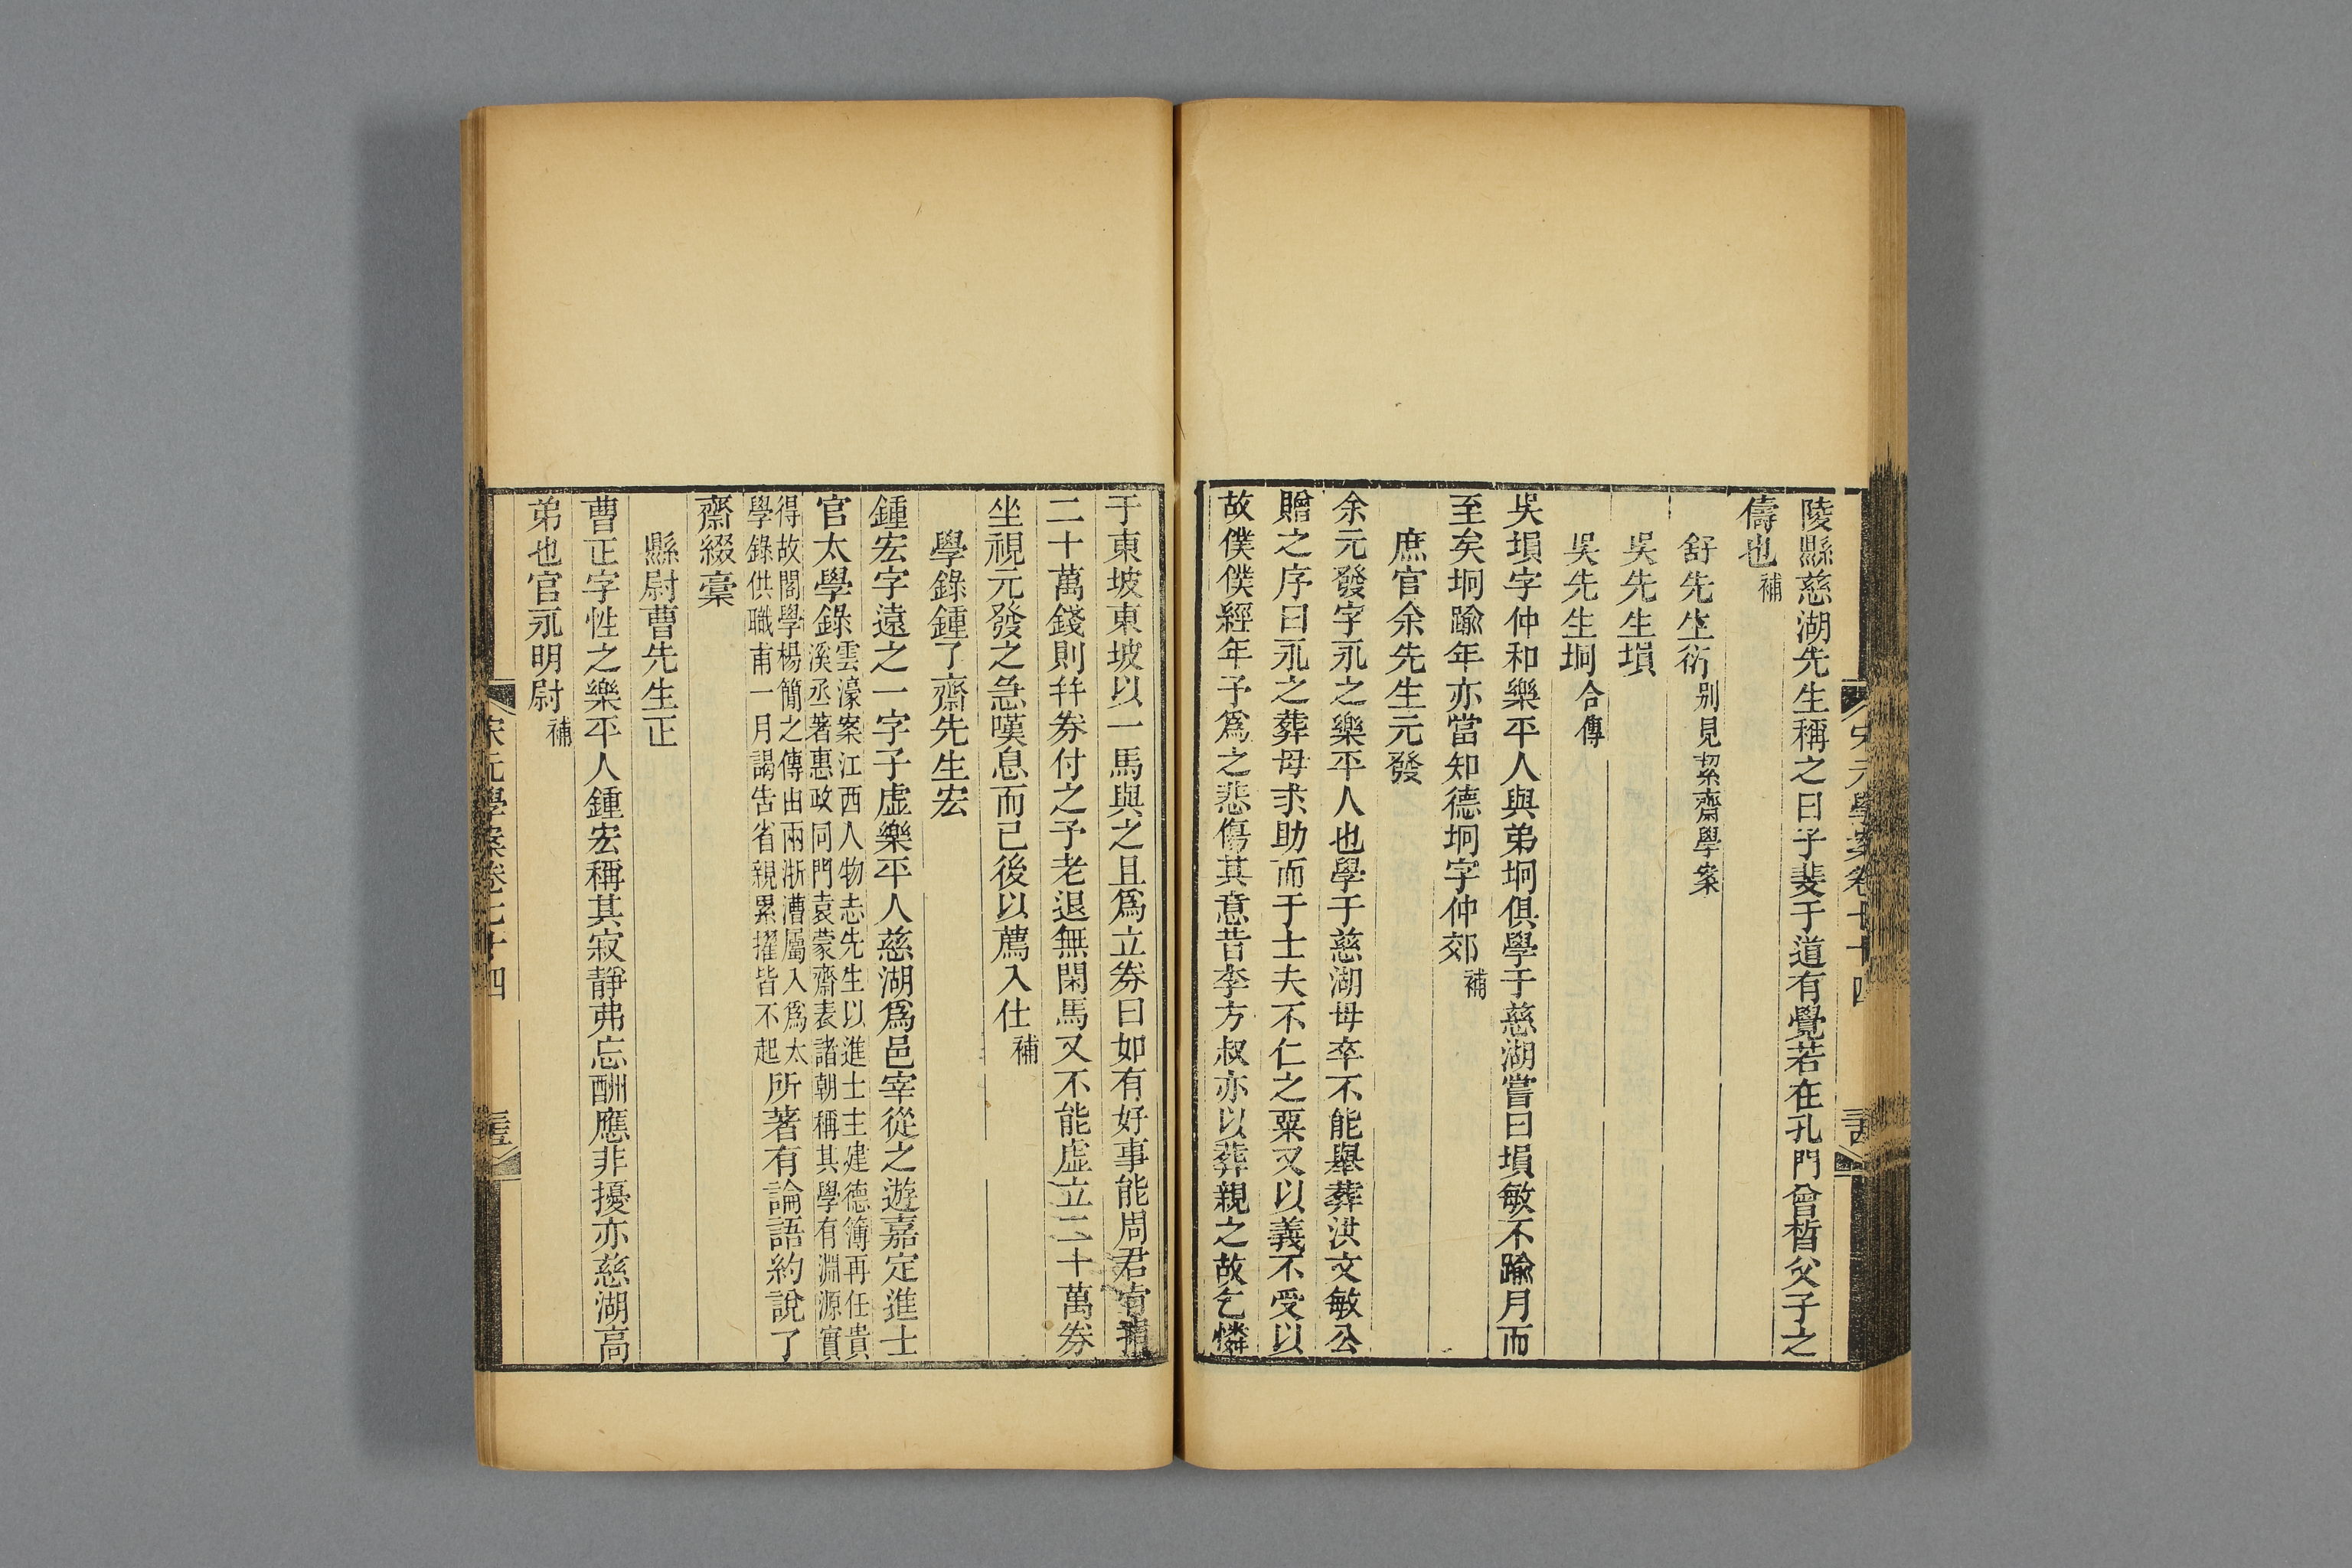 陵縣慈湖先生稱之曰子斐于道有覺若在孔門曾晳父子之
儔也補
舒先生衍別見絜齋學案
吳先生塤
吳先生坰合傳
吳塤字仲和樂平人與弟坰俱學于慈湖嘗曰塤敏不踰月而
至矣坰踰年亦當知德坰字仲郊補
庶官余先生元發
余元發字永之樂平人也學于慈湖母卒不能舉葬洪文敏公
贈之序曰永之葬母求助而于士夫不仁之粟又以義不受以
故僕僕經年予爲之悲傷其意昔李方叔亦以葬親之故乞憐
于東坡東坡以一馬與之且爲立券曰如有好事能周君
二十萬錢則幷券付之予老退無閑馬又不能虛立二十萬券
坐視元發之急嘆息而已後以薦入仕補
學錄鍾了齋先生宏
鍾宏字遠之一字子虛樂平人慈湖爲邑宰從之遊嘉定進士
官太學錄雲濠案江西人物志先生以進士主建德簿再任貴
溪丞著惠政同門袁蒙齋表諸朝稱其學有淵源實
得故閣學楊簡之傳由兩浙漕屬入爲太
學錄供職甫一月謁告省親累擢皆不起所著有論語約說了
齋綴稾
縣尉曹先生正
曹正字性之樂平人鍾宏稱其寂靜弗忘酬應非擾亦慈湖高
弟也官永明尉補
宋元學案卷七十四